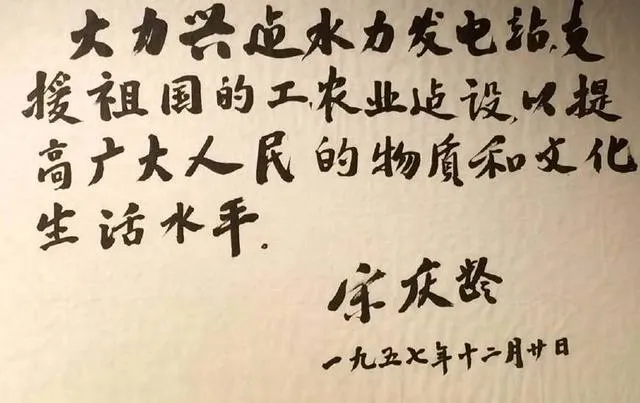 大力兴建水力发电站,支
援祖国的工农业建设,以提
高广大人民的物质和文化
生活水平.
宋庆龄
一九五七年十二月廿日